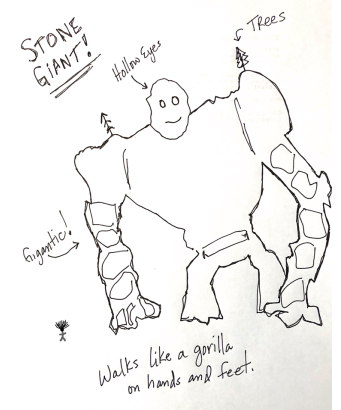 STONE
GIANT!
Hollow Eyes
Trees
Gigantic!
Walks like a gorilla
on hands and feet.